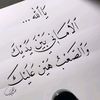 يا الله...
الأماني بين يديك
والصعب هين عليك